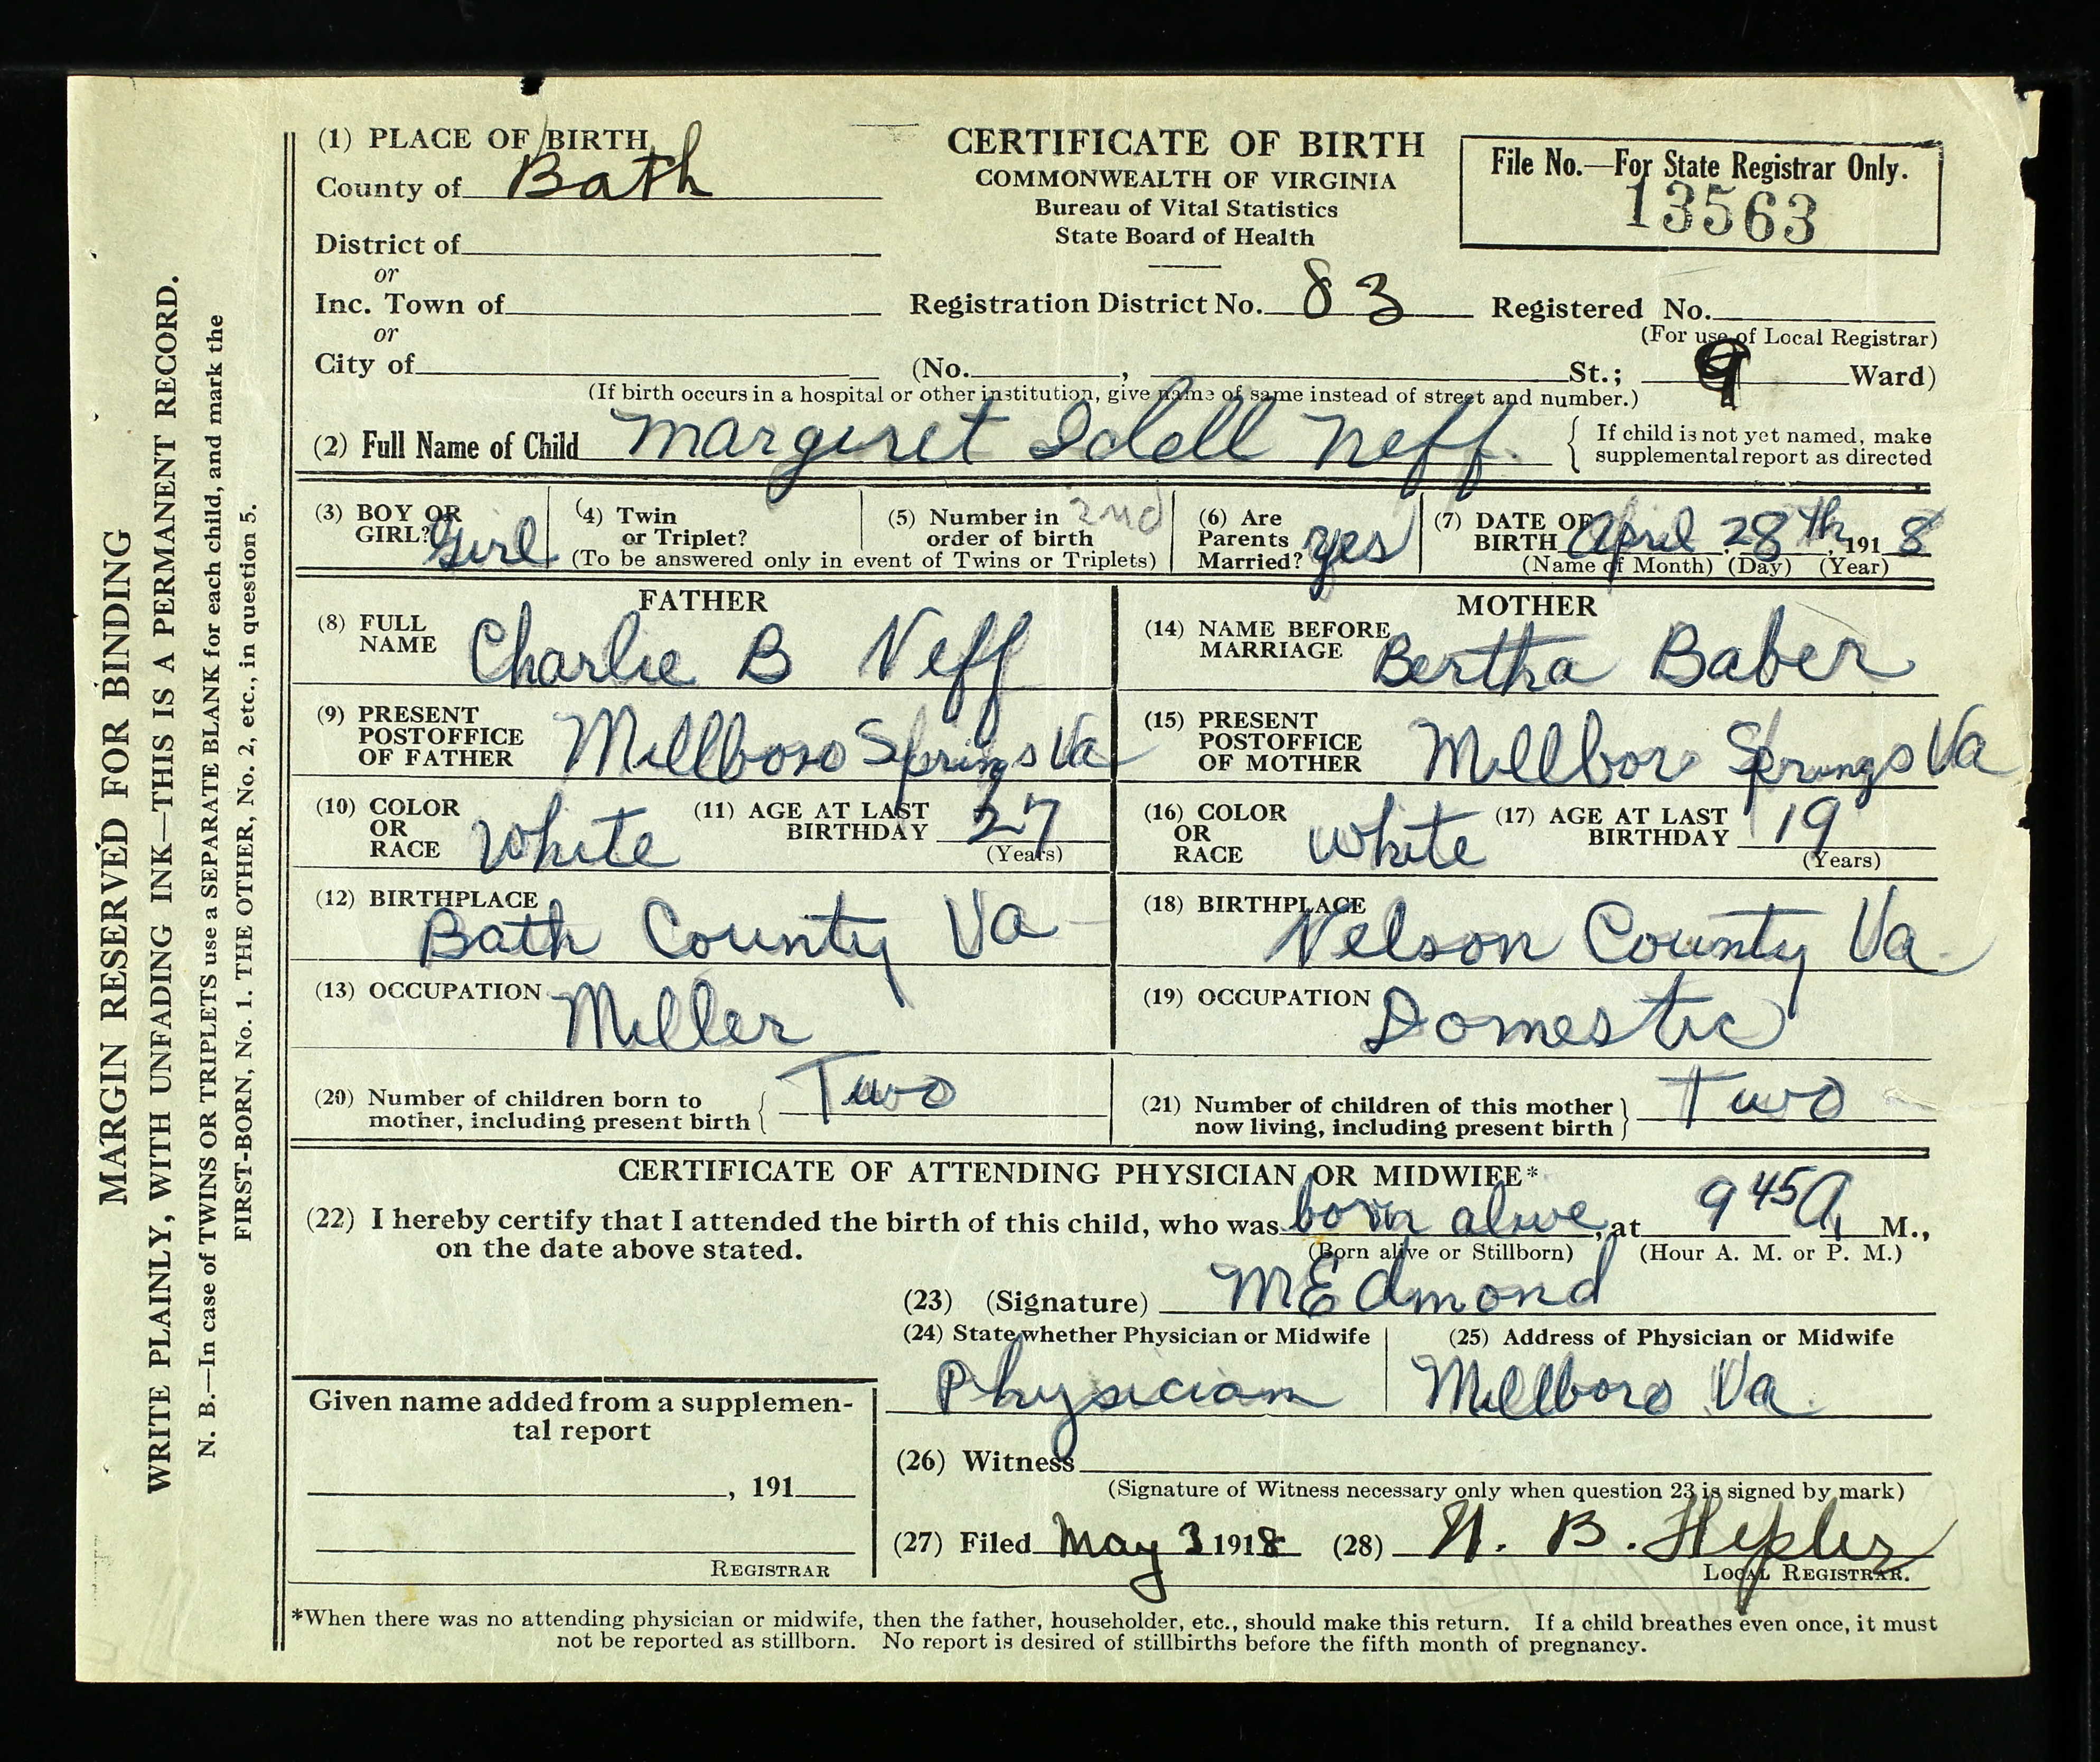 MARGIN RESERVED FOR BINDING
WRITE PLAINLY, WITH UNFADING INK—THIS IS A PERMANENT RECORD.
N. B.—In case of TWINS OR TRIPLETS use a SEPARATE BLANK for each child, and mark the
FIRST-BORN, No. 1. THE OTHER, No. 2, etc., in question 5.
(1) PLACE OF BIRTH
County of Bath
District of
or
Inc. Town of
or
City of
CERTIFICATE OF BIRTH
COMMONWEALTH OF VIRGINIA
Bureau of Vital Statistics
State Board of Health
File No.—For State Registrar Only.
13563
Registration District No. 83 Registered No.
(For use of Local Registrar)
(No. , St.; 9 Ward)
(If birth occurs in a hospital or other institution, give name of same instead of street and number.)
(2) Full Name of Child Margaret Idell Neff.
{ If child is not yet named, make
supplemental report as directed
(3) BOY OR
GIRL? Girl
(4) Twin
or Triplet?
(5) Number in
order of birth 2nd
(To be answered only in event of Twins or Triplets)
(6) Are
Parents
Married? yes
(7) DATE OF
BIRTH April 28th, 1918
(Name of Month) (Day) (Year)
FATHER
(8) FULL
NAME Charlie B Neff
(9) PRESENT
POSTOFFICE
OF FATHER Millboro Springs Va
(10) COLOR
OR
RACE White
(11) AGE AT LAST
BIRTHDAY 27
(Years)
(12) BIRTHPLACE
Bath County Va
(13) OCCUPATION Miller
MOTHER
(14) NAME BEFORE
MARRIAGE Bertha Baber
(15) PRESENT
POSTOFFICE
OF MOTHER Millboro Springs Va
(16) COLOR
OR
RACE White
(17) AGE AT LAST
BIRTHDAY 19
(Years)
(18) BIRTHPLACE
Nelson County Va
(19) OCCUPATION Domestic
(20) Number of children born to
mother, including present birth { Two
(21) Number of children of this mother
now living, including present birth } Two
CERTIFICATE OF ATTENDING PHYSICIAN OR MIDWIFE*
(22) I hereby certify that I attended the birth of this child, who was born alive, at 9 45 A. M.,
on the date above stated. (Born alive or Stillborn) (Hour A. M. or P. M.)
(23) (Signature) M Edmond
(24) State whether Physician or Midwife
Physician
(25) Address of Physician or Midwife
Millboro Va.
Given name added from a supplemen-
tal report
, 191
REGISTRAR
(26) Witness
(Signature of Witness necessary only when question 23 is signed by mark)
(27) Filed May 3 1918 (28) H. B. Hepler
LOCAL REGISTRAR.
*When there was no attending physician or midwife, then the father, householder, etc., should make this return. If a child breathes even once, it must
not be reported as stillborn. No report is desired of stillbirths before the fifth month of pregnancy.